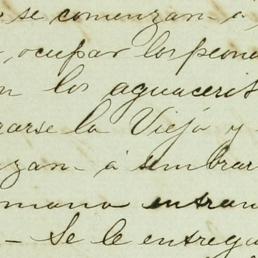 se comenzan a
, ocupar los peone
n los aguacerit
rarse la Vieja y
nzan a sembrar
mana entran
- Se le entrega